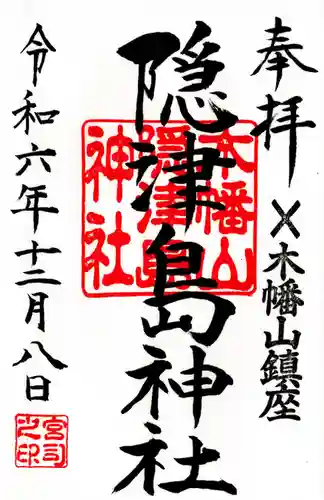 奉拝
×木幡山鎮座
隠津島神社
木幡山
隠津島
神社
令和六年十二月八日
宮司
之印